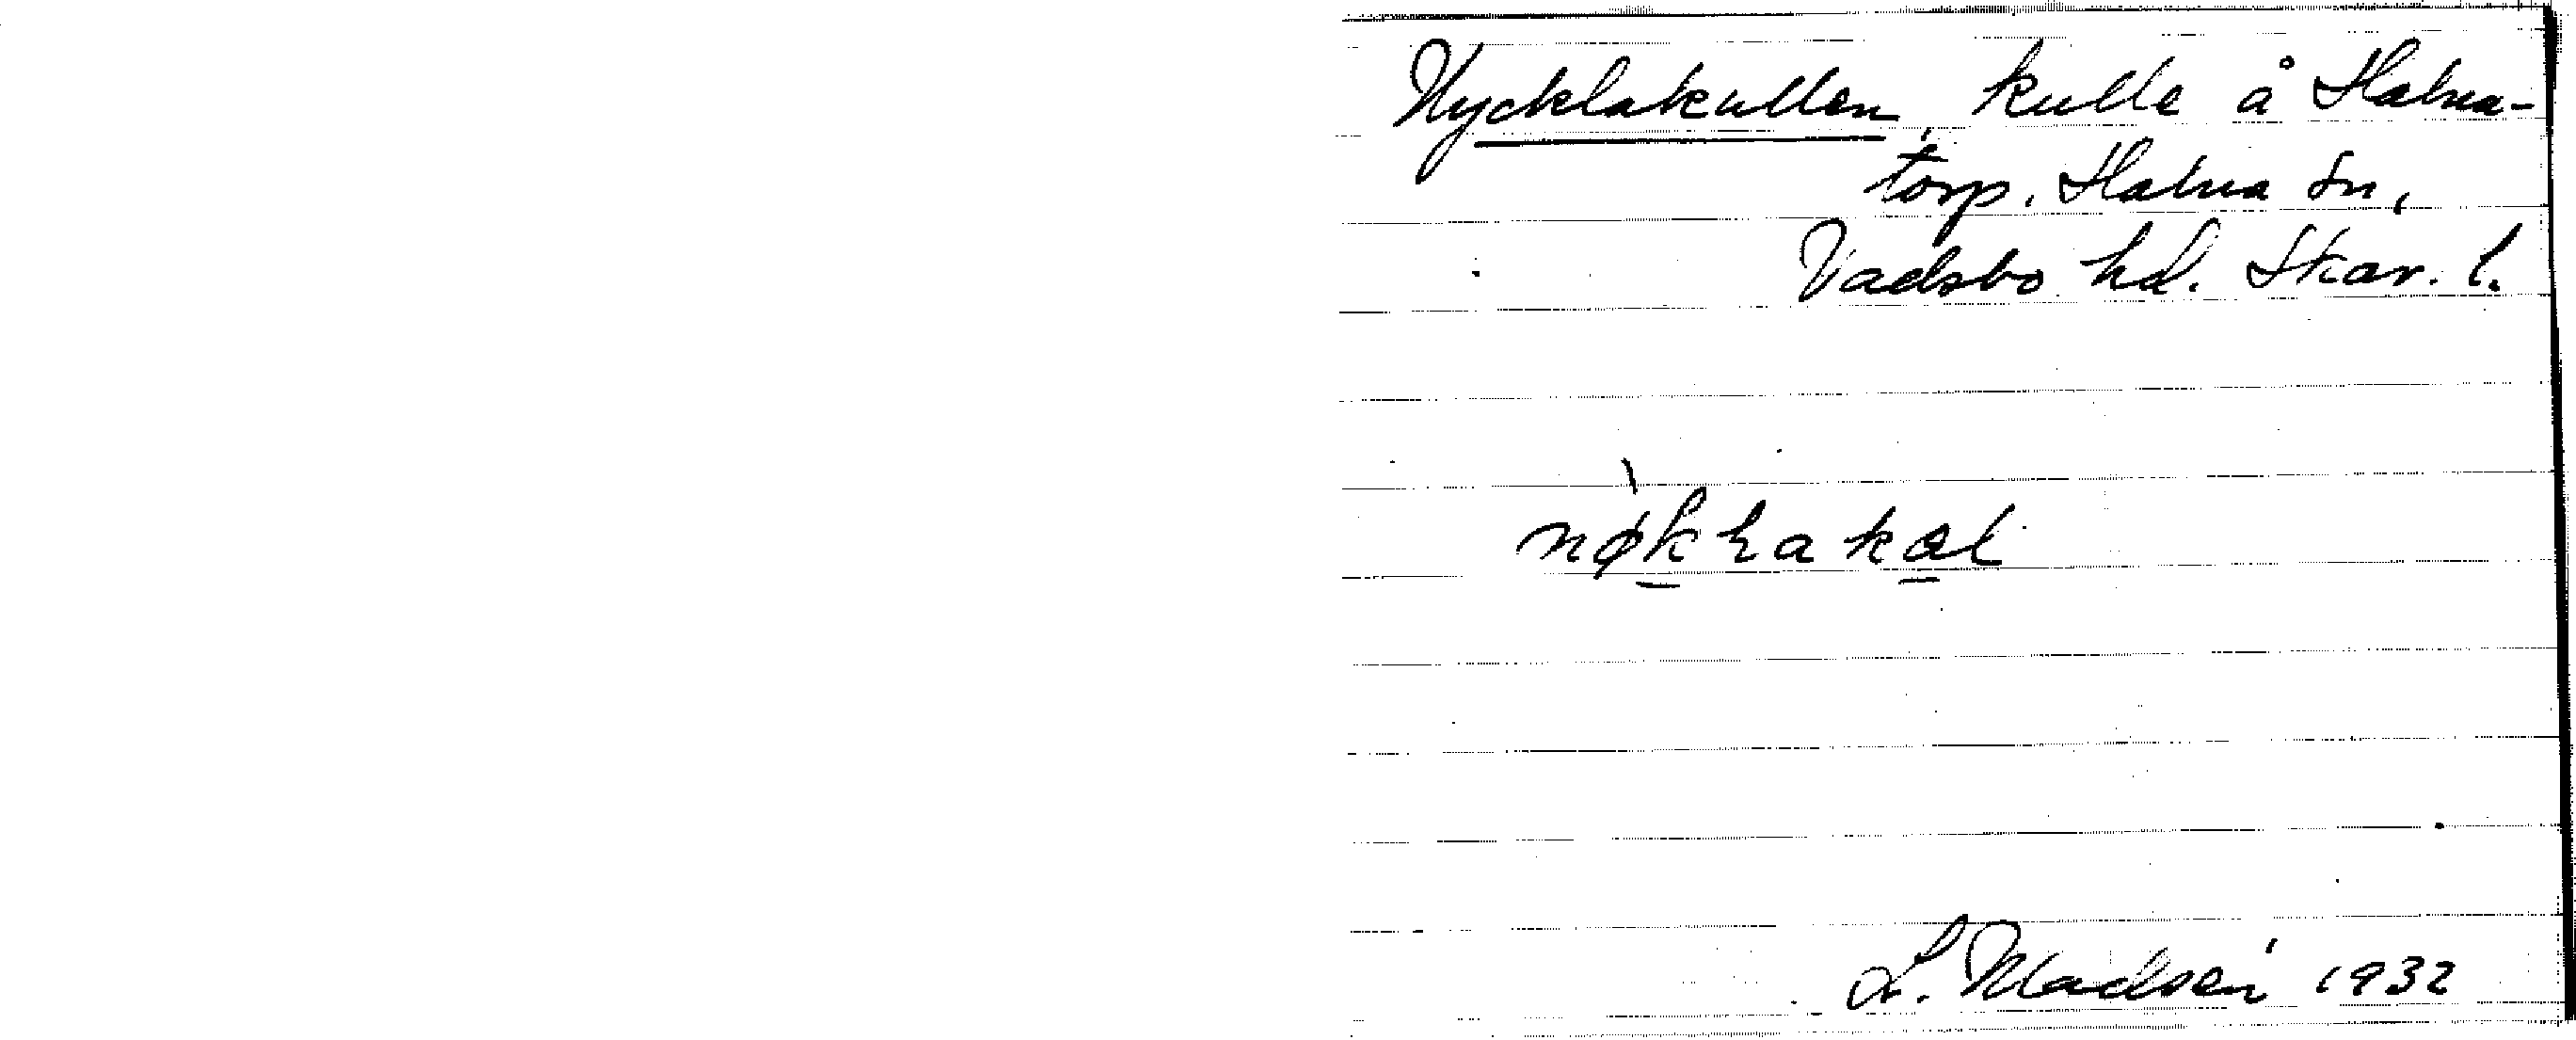 Nycklakullen, kulle å Halna-
torp, Halna sn,
Vadsbo hd. Skar. l.
L. Madsén 1932